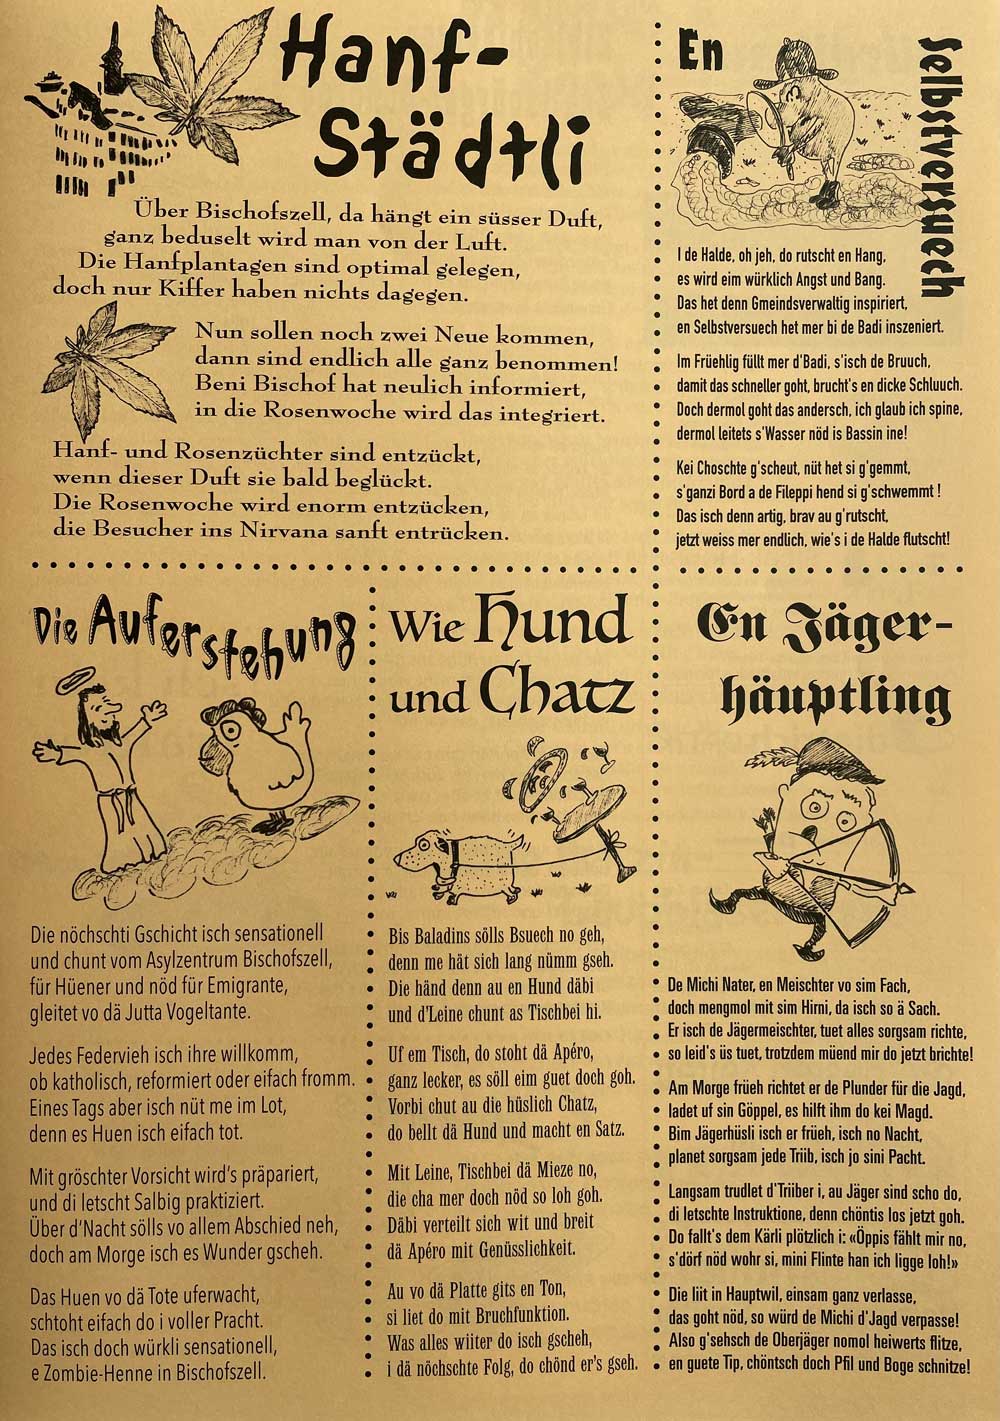 Hanf-
Städtli
Über Bischofszell, da hängt ein süsser Duft,
ganz beduselt wird man von der Luft.
Die Hanfplantagen sind optimal gelegen,
doch nur Kiffer haben nichts dagegen.
Nun sollen noch zwei Neue kommen,
dann sind endlich alle ganz benommen!
Beni Bischof hat neulich informiert,
in die Rosenwoche wird das integriert.
Hanf- und Rosenzüchter sind entzückt,
wenn dieser Duft sie bald beglückt.
Die Rosenwoche wird enorm entzücken,
die Besucher ins Nirvana sanft entrücken.
En
Selbstversuech
I de Halde, oh jeh, do rutscht en Hang,
es wird eim würklich Angst und Bang.
Das het denn Gmeindsverwaltig inspiriert,
en Selbstversuech het mer bi de Badi inszeniert.
Im Früehlig füllt mer d'Badi, s'isch de Bruuch,
damit das schneller goht, brucht's en dicke Schluuch.
Doch dermol goht das andersch, ich glaub ich spine,
dermol leitets s'Wasser nöd is Bassin ine!
Kei Choschte g'scheut, nüt het si g'gemmt,
s'ganzi Bord a de Fileppi hend si g'schwemmt !
Das isch denn artig, brav au g'rutscht,
jetzt weiss mer endlich, wie's i de Halde flutscht!
Die Auferstehung
Die nöchschti Gschicht isch sensationell
und chunt vom Asylzentrum Bischofszell,
für Hüener und nöd für Emigrante,
gleitet vo dä Jutta Vogeltante.
Jedes Federvieh isch ihre willkomm,
ob katholisch, reformiert oder eifach fromm.
Eines Tags aber isch nüt me im Lot,
denn es Huen isch eifach tot.
Mit gröschter Vorsicht wird's präpariert,
und di letscht Salbig praktiziert.
Über d'Nacht sölls vo allem Abschied neh,
doch am Morge isch es Wunder gscheh.
Das Huen vo dä Tote uferwacht,
schtoht eifach do i voller Pracht.
Das isch doch würkli sensationell,
e Zombie-Henne in Bischofszell.
Wie Hund
und Chatz
Bis Baladins sölls Bsuech no geh,
denn me hät sich lang nümm gseh.
Die händ denn au en Hund däbi
und d'Leine chunt as Tischbei hi.
Uf em Tisch, do stoht dä Apéro,
ganz lecker, es söll eim guet doch goh.
Vorbi chut au die hüslich Chatz,
do bellt dä Hund und macht en Satz.
Mit Leine, Tischbei dä Mieze no,
die cha mer doch nöd so loh goh.
Däbi verteilt sich wit und breit
dä Apéro mit Genüsslichkeit.
Au vo dä Platte gits en Ton,
si liet do mit Bruchfunktion.
Was alles wiiter do isch gscheh,
i dä nöchschte Folg, do chönd er's gseh.
En Jäger-
häuptling
De Michi Nater, en Meischter vo sim Fach,
doch mengmol mit sim Hirni, da isch so ä Sach.
Er isch de Jägermeischter, tuet alles sorgsam richte,
so leid's üs tuet, trotzdem müend mir do jetzt brichte!
Am Morge früeh richtet er de Plunder für die Jagd,
ladet uf sin Göppel, es hilft ihm do kei Magd.
Bim Jägerhüsli isch er früeh, isch no Nacht,
planet sorgsam jede Triib, isch jo sini Pacht.
Langsam trudlet d'Triiber i, au Jäger sind scho do,
di letschte Instruktione, denn chöntis los jetzt goh.
Do fallt's dem Kärli plötzlich i: «Öppis fählt mir no,
s'dörf nöd wohr si, mini Flinte han ich ligge loh!»
Die liit in Hauptwil, einsam ganz verlasse,
das goht nöd, so würd de Michi d'Jagd verpasse!
Also g'sehsch de Oberjäger nomol heiwerts flitze,
en guete Tip, chöntsch doch Pfil und Boge schnitze!